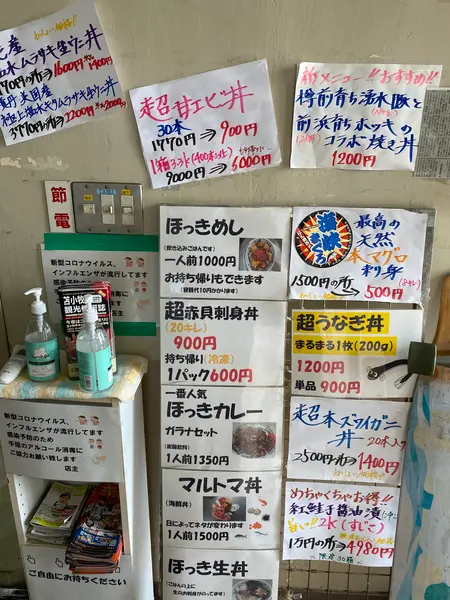 1600円
2200円
超甘エビ丼
30本
1770円⇒900円
1箱3.3k(400本以上)
9000円⇒6000円
新メニュー!!おすすめ!!
樽前育ち湧水豚と
前浜育ちホッキの
コラボ焼き丼
1200円
節電
新型コロナウイルス、
インフルエンザが流行してます
感染予防のため
ほっきめし
(炊き込みごはんです)
一人前1000円
お持ち帰りもできます
(容器代10円かかります)
最高の
天然
本マグロ
刺り身
1500円の所
500円
超赤貝刺身丼
(20キレ)
900円
持ち帰り(冷凍)
1パック600円
超うなぎ丼
まるまる1枚(200g)
1200円
単品 900円
苫小牧
観光
一番人気
ほっきカレー
ガラナセット
(炭酸飲料)
1人前1350円
超本ズワイガニ
丼
20本入り
2500円の所⇒1400円
新型コロナウイルス、
インフルエンザが流行してます
感染予防のため
手指のアルコール消毒に
ご協力お願い致します
店主
マルトマ丼
(海鮮丼)
日によってネタが変わります
1人前1500円
めちゃくちゃお得!!
紅鮭子醤油漬
2k(すじこ)
1万円の所⇒4980円
ほっき生丼
(ごはんの上に
生のお刺身がのってます)
ご自由にお持ちください